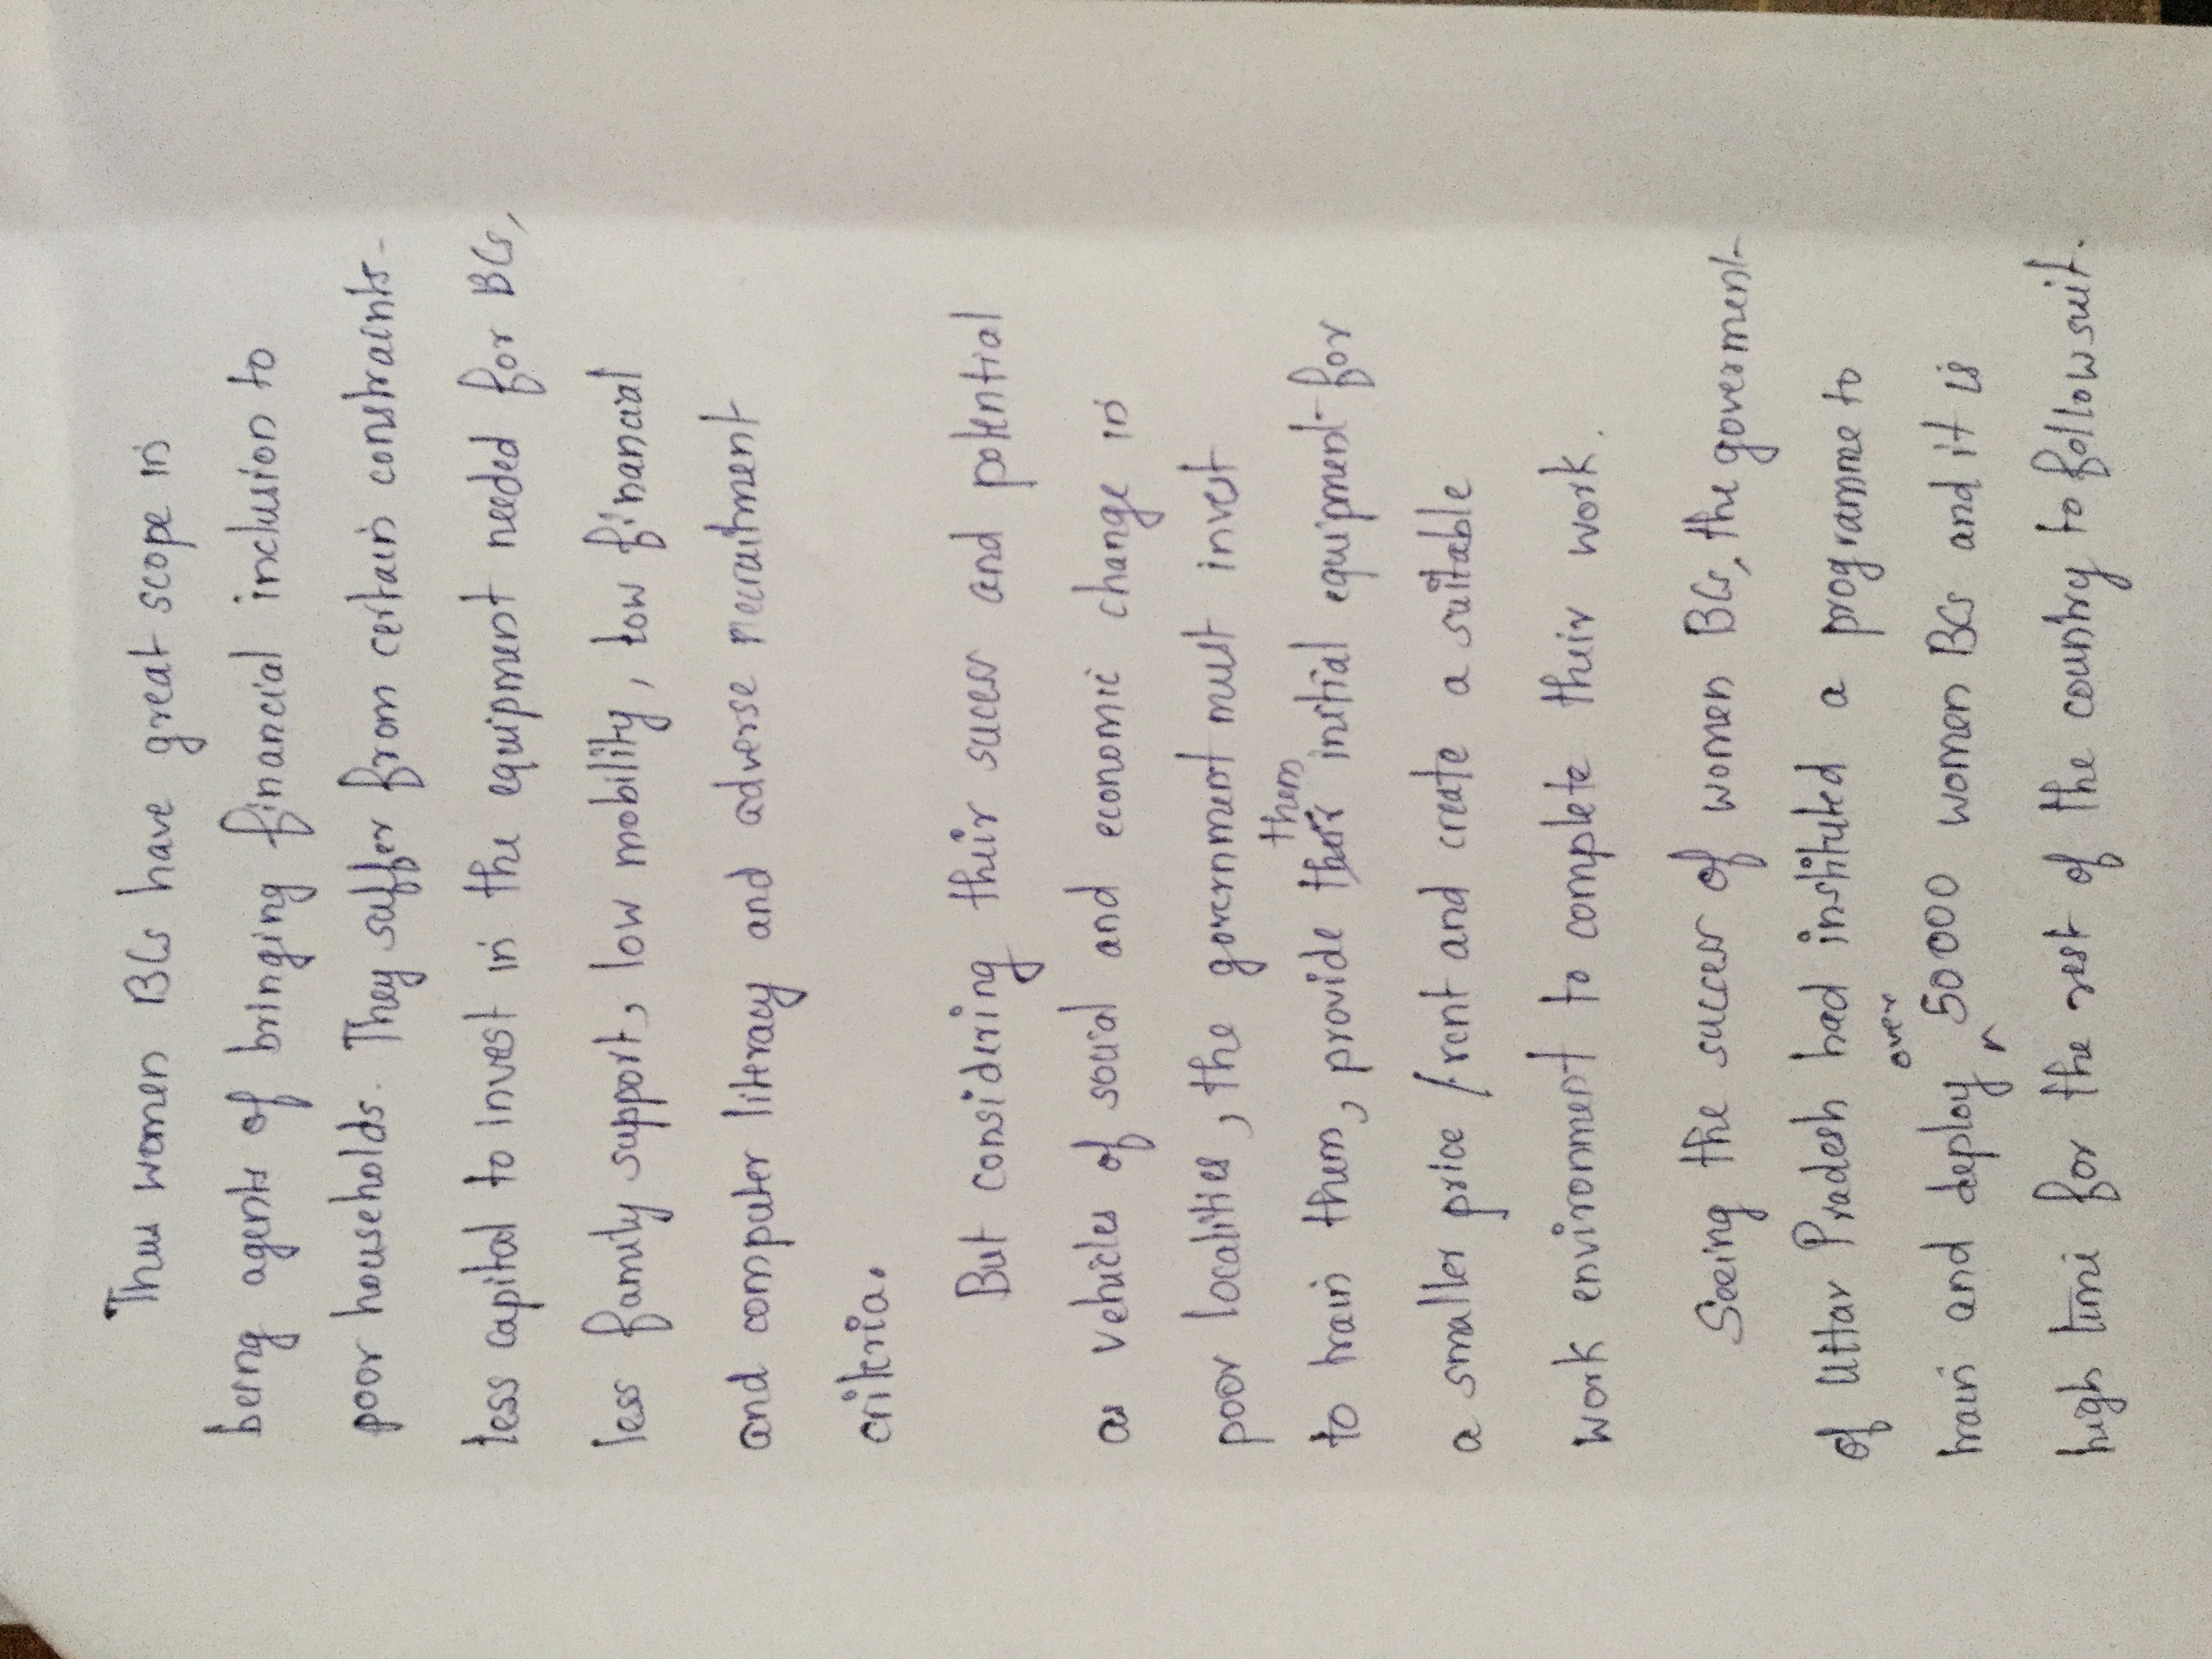 Thus women BCs have great scope in
being agents of bringing financial inclusion to
poor households. They suffer from certain constraints -
less capital to invest in the equipment needed for BCs,
less family support, low mobility, low financial
and computer literacy and adverse recruitment
criteria.
But considering their success and potential
as vehicles of social and economic change in
poor localities, the government must invest
to train them, provide them initial equipment for
a smaller price / rent and create a suitable
work environment to complete their work.
Seeing the success of women BCs, the government
of Uttar Pradesh had instituted a programme to
train and deploy over 50000 women BCs and it is
high time for the rest of the country to follow suit.